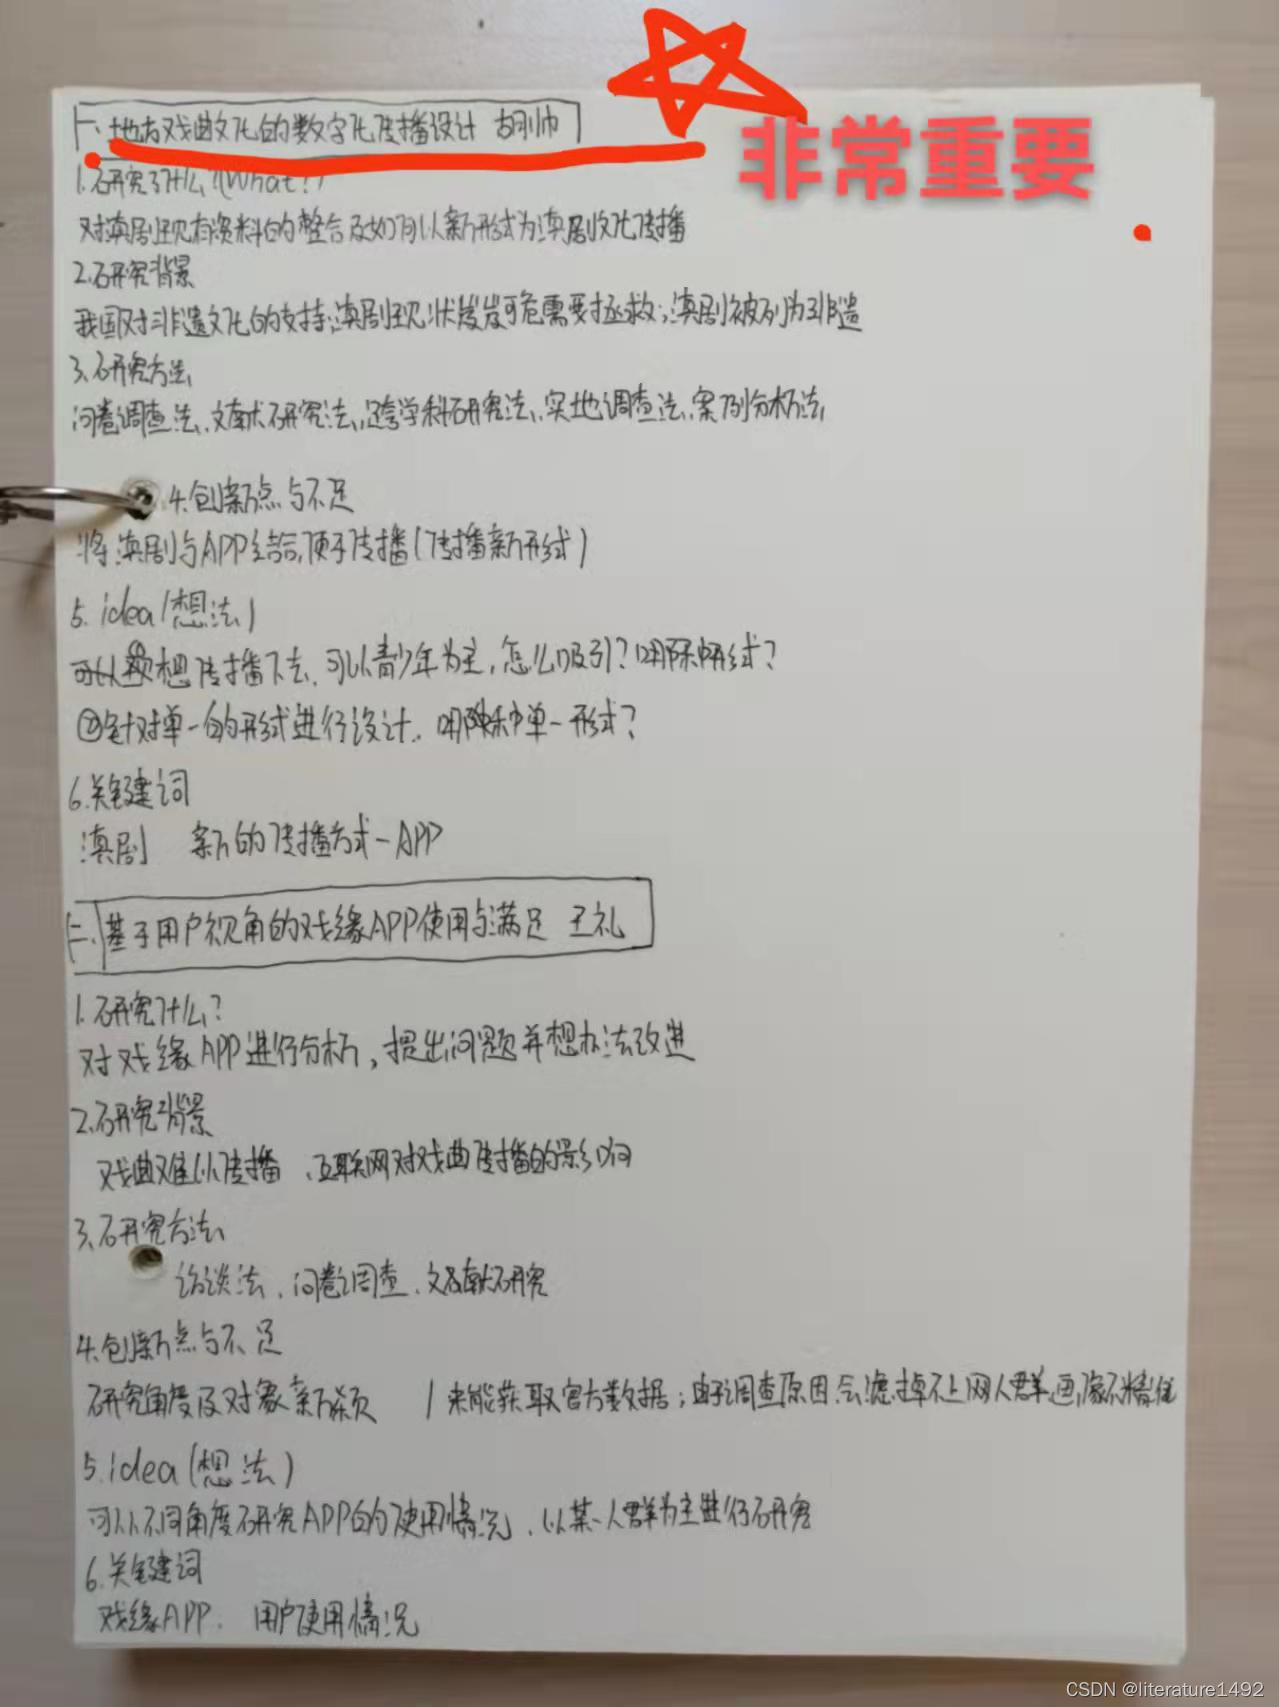 一、地方戏曲文化的数字化传播设计 胡帅
非常重要
1.研究了什么?(What?)
对滇剧现有资料的整合及如何以新形式为滇剧文化传播
2.研究背景
我国对非遗文化的支持;滇剧现状岌岌可危需要拯救;滇剧被列为非遗
3.研究方法
问卷调查法、文献研究法、跨学科研究法、实地调查法、案例分析法
4.创新点与不足
将滇剧与APP结合,便于传播(传播新形式)
5.idea(想法)
想传播下去,可以青少年为主,怎么吸引?哪种形式?
②针对单一的形式进行设计,哪种单一形式?
6.关键词
滇剧 新的传播方式-APP
二、基于用户视角的戏缘APP使用与满足 王礼
1.研究什么?
对戏缘APP进行分析,提出问题并想办法改进
2.研究背景
戏曲难以传播、互联网对戏曲传播的影响
3.研究方法
访谈法、问卷调查、文献研究
4.创新点与不足
研究角度及对象新颖 / 未能获取官方数据;由于调查原因会滤掉不上网人群,画像不精准
5.idea(想法)
可以不同角度研究APP的使用情况、以某一人群为主进行研究
6.关键词
戏缘APP、用户使用情况
CSDN @literature1492